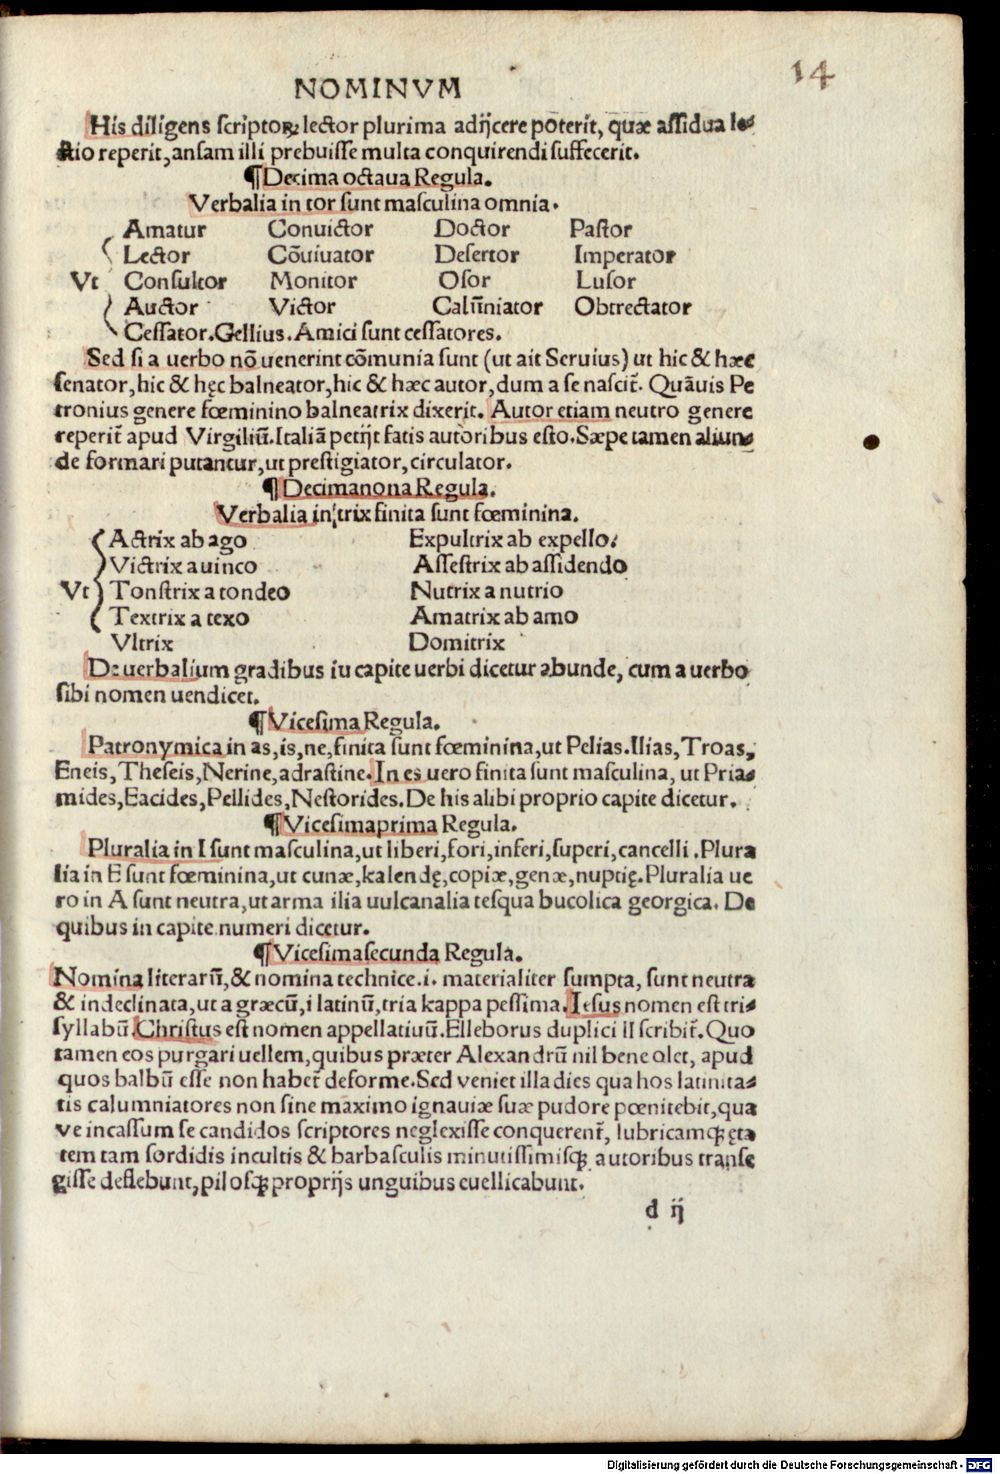 14
NOMINVM
His diligens scriptoꝝ lector plurima adijcere poterit, quæ assidua le-
ctio reperit, ansam illi prebuisse multa conquirendi suffecerit.
¶Decima octaua Regula.
Verbalia in tor sunt masculina omnia.
Amatur Conuictor Doctor Pastor
Lector Cõuiuator Desertor Imperator
Vt Consultor Monitor Osor Lusor
Auctor Victor Calũniator Obtrectator
Cessator. Gellius. Amici sunt cessatores.
Sed si a uerbo nõ uenerint cõmunia sunt (ut ait Seruius) ut hic & hæc
senator, hic & hęc balneator, hic & hæc autor, dum a se nascit᷑. Quãuis Pe
tronius genere fœminino balneatrix dixerit. Autor etiam neutro genere
reperit᷑ apud Virgiliũ. Italiã petijt fatis autoribus esto. Sæpe tamen aliun-
de formari putantur, ut prestigiator, circulator.
¶Decimanona Regula.
Verbalia in trix finita sunt fœminina.
Actrix ab ago Expultrix ab expello.
Victrix a uinco Assestrix ab assidendo
Vt Tonstrix a tondeo Nutrix a nutrio
Textrix a texo Amatrix ab amo
Vltrix Domitrix
De uerbalium gradibus iu capite uerbi dicetur abunde, cum a uerbo
sibi nomen uendicet.
¶Vicesima Regula.
Patronymica in as, is, ne, finita sunt fœminina, ut Pelias. Ilias, Troas,
Eneis, Theseis, Nerine, adrastine. In es uero finita sunt masculina, ut Pria-
mides, Eacides, Pellides, Nestorides. De his alibi proprio capite dicetur.
¶Vicesimaprima Regula.
Pluralia in I sunt masculina, ut liberi, fori, inferi, superi, cancelli. Plura
lia in E sunt fœminina, ut cunæ, kalendę, copiæ, genæ, nuptię. Pluralia ue
ro in A sunt neutra, ut arma ilia uulcanalia tesqua bucolica georgica. De
quibus in capite numeri dicetur.
¶Vicesimasecunda Regula.
Nomina literarũ, & nomina technice .i. materialiter sumpta, sunt neutra
& indeclinata, ut a græcũ, i latinũ, tria kappa pessima. Iesus nomen est tri-
syllabũ. Christus est nomen appellatiuũ. Elleborus duplici ll scribit᷑. Quo
tamen eos purgari uellem, quibus præter Alexandrũ nil bene olet, apud
quos balbũ esse non habet᷑ deforme. Sed veniet illa dies qua hos latinita-
tis calumniatores non sine maximo ignauiæ suæ pudore pœnitebit, qua
ve incassum se candidos scriptores neglexisse conquerent᷑, lubricamqꝫ ęta
tem tam sordidis incultis & barbasculis minutissimisqꝫ autoribus transe
gisse deflebunt, pilosqꝫ proprijs unguibus euellicabunt.
d ij
Digitalisierung gefördert durch die Deutsche Forschungsgemeinschaft - DFG